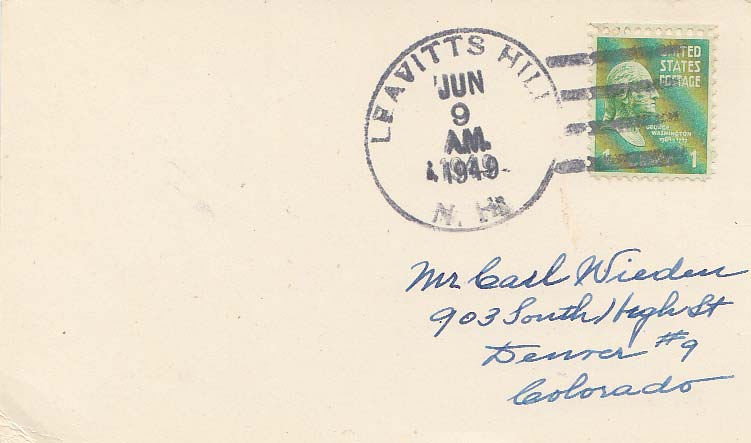 LEAVITTS HILL
JUN
9
AM.
1949
N. H.
UNITED
STATES
POSTAGE
GEORGE
WASHINGTON
1 1
Mr. Carl Wieden
903 South High St
Denver #9
Colorado